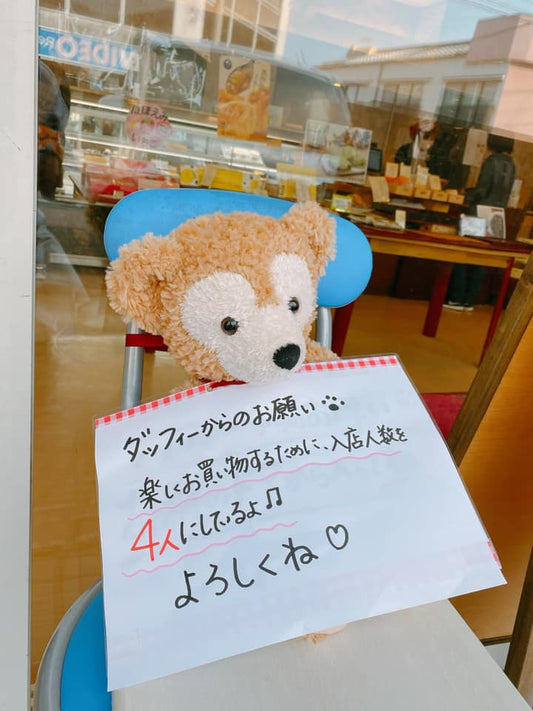 VIDEO
ほほえみ
ダッフィーからのお願い
楽しくお買い物するために、入店人数を
4人にしているよ♫
よろしくね♡